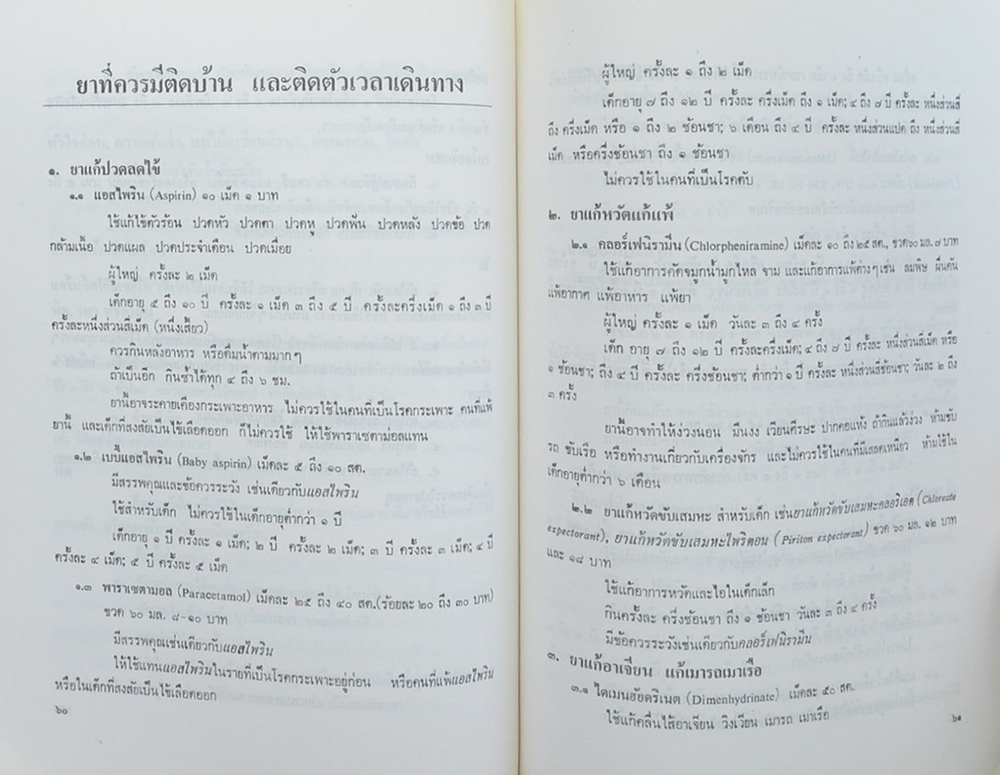 ยาที่ควรมีติดบ้าน และติดตัวเวลาเดินทาง
๑. ยาแก้ปวดลดไข้
๑.๑ แอสไพริน (Aspirin) ๑๐ เม็ด ๑ บาท
ใช้แก้ไข้ตัวร้อน ปวดหัว ปวดตา ปวดหู ปวดฟัน ปวดหลัง ปวดข้อ ปวด
กล้ามเนื้อ ปวดแผล ปวดประจำเดือน ปวดเมื่อย
ผู้ใหญ่ ครั้งละ ๒ เม็ด
เด็กอายุ ๕ ถึง ๑๐ ปี ครั้งละ ๑ เม็ด ๓ ถึง ๕ ปี ครั้งละครึ่งเม็ด ๑ ถึง ๓ ปี
ครั้งละหนึ่งส่วนสี่เม็ด (หนึ่งเสี้ยว)
ควรกินหลังอาหาร หรือดื่มน้ำตามมากๆ
ถ้าเป็นอีก กินซ้ำได้ทุก ๔ ถึง ๖ ชม.
ยานี้อาจระคายเคืองกระเพาะอาหาร ไม่ควรใช้ในคนที่เป็นโรคกระเพาะ คนที่แพ้
ยานี้ และเด็กที่สงสัยเป็นไข้เลือดออก ก็ไม่ควรใช้ ให้ใช้พาราเซตาม่อลแทน
๑.๒ เบบี้แอสไพริน (Baby aspirin) เม็ดละ ๕ ถึง ๑๐ สต.
มีสรรพคุณและข้อควรระวัง เช่นเดียวกับแอสไพริน
ใช้สำหรับเด็ก ไม่ควรใช้ในเด็กอายุต่ำกว่า ๑ ปี
เด็กอายุ ๑ ปี ครั้งละ ๑ เม็ด; ๒ ปี ครั้งละ ๒ เม็ด; ๓ ปี ครั้งละ ๓ เม็ด; ๔ ปี
ครั้งละ ๔ เม็ด; ๕ ปี ครั้งละ ๕ เม็ด
๑.๓ พาราเซตามอล (Paracetamol) เม็ดละ ๒๕ ถึง ๔๐ สต.(ร้อยละ ๒๐ ถึง ๓๐ บาท)
ขวด ๖๐ มล. ๘-๑๐ บาท
มีสรรพคุณเช่นเดียวกับแอสไพริน
ให้ใช้แทนแอสไพรินในรายที่เป็นโรคกระเพาะอยู่ก่อน หรือคนที่แพ้แอสไพริน
หรือในเด็กที่สงสัยเป็นไข้เลือดออก
๖๐
ผู้ใหญ่ ครั้งละ ๑ ถึง ๒ เม็ด
เด็กอายุ ๗ ถึง ๑๒ ปี ครั้งละ ครึ่งเม็ด ถึง ๑ เม็ด; ๔ ถึง ๗ ปี ครั้งละ หนึ่งส่วนสี่
ถึง ครึ่งเม็ด หรือ ๑ ถึง ๒ ช้อนชา; ๖ เดือน ถึง ๔ ปี ครั้งละ หนึ่งส่วนแปด ถึง หนึ่งส่วนสี่
เม็ด หรือครึ่งช้อนชา ถึง ๑ ช้อนชา
ไม่ควรใช้ในคนที่เป็นโรคตับ
๒. ยาแก้หวัดแก้แพ้
๒.๑ คลอร์เฟนิรามีน (Chlorpheniramine) เม็ดละ ๑๐ ถึง ๒๕ สต., ขวด ๖๐ มล. ๗ บาท
ใช้แก้อาการคัดจมูกน้ำมูกไหล จาม และแก้อาการแพ้ต่างๆ เช่น ลมพิษ ผื่นคัน
แพ้อากาศ แพ้อาหาร แพ้ยา
ผู้ใหญ่ ครั้งละ ๑ เม็ด วันละ ๓ ถึง ๔ ครั้ง
เด็ก อายุ ๗ ถึง ๑๒ ปี ครั้งละครึ่งเม็ด; ๔ ถึง ๗ ปี ครั้งละ หนึ่งส่วนสี่เม็ด หรือ
๑ ช้อนชา; ๑ ถึง ๔ ปี ครั้งละ ครึ่งช้อนชา; ต่ำกว่า ๑ ปี ครั้งละ หนึ่งส่วนสี่ช้อนชา; วันละ ๒ ถึง
๓ ครั้ง
ยานี้อาจทำให้ง่วงนอน มึนงง เวียนศีรษะ ปากคอแห้ง ถ้ากินแล้วง่วง ห้ามขับ
รถ ขับเรือ หรือทำงานเกี่ยวกับเครื่องจักร และไม่ควรใช้ในคนที่มีเสลดเหนียว ห้ามใช้ใน
เด็กอายุต่ำกว่า ๖ เดือน
๒.๒ ยาแก้หวัดขับเสมหะ สำหรับเด็ก เช่นยาแก้หวัดขับเสมหะคลอริเอต (Chloreate
expectorant), ยาแก้หวัดขับเสมหะไพริตอน (Piriton expectorant) ขวด ๖๐ มล. ๑๒ บาท
และ ๑๘ บาท
ใช้แก้อาการหวัดและไอในเด็กเล็ก
กินครั้งละ ครึ่งช้อนชา ถึง ๑ ช้อนชา วันละ ๓ ถึง ๔ ครั้ง
มีข้อควรระวังเช่นเดียวกับคลอร์เฟนิรามีน
๓. ยาแก้อาเจียน แก้เมารถเมาเรือ
๓.๑ ไดเมนฮัยดริเนต (Dimenhydrinate) เม็ดละ ๕๐ สต.
ใช้แก้คลื่นไส้อาเจียน วิงเวียน เมารถ เมาเรือ
๖๑